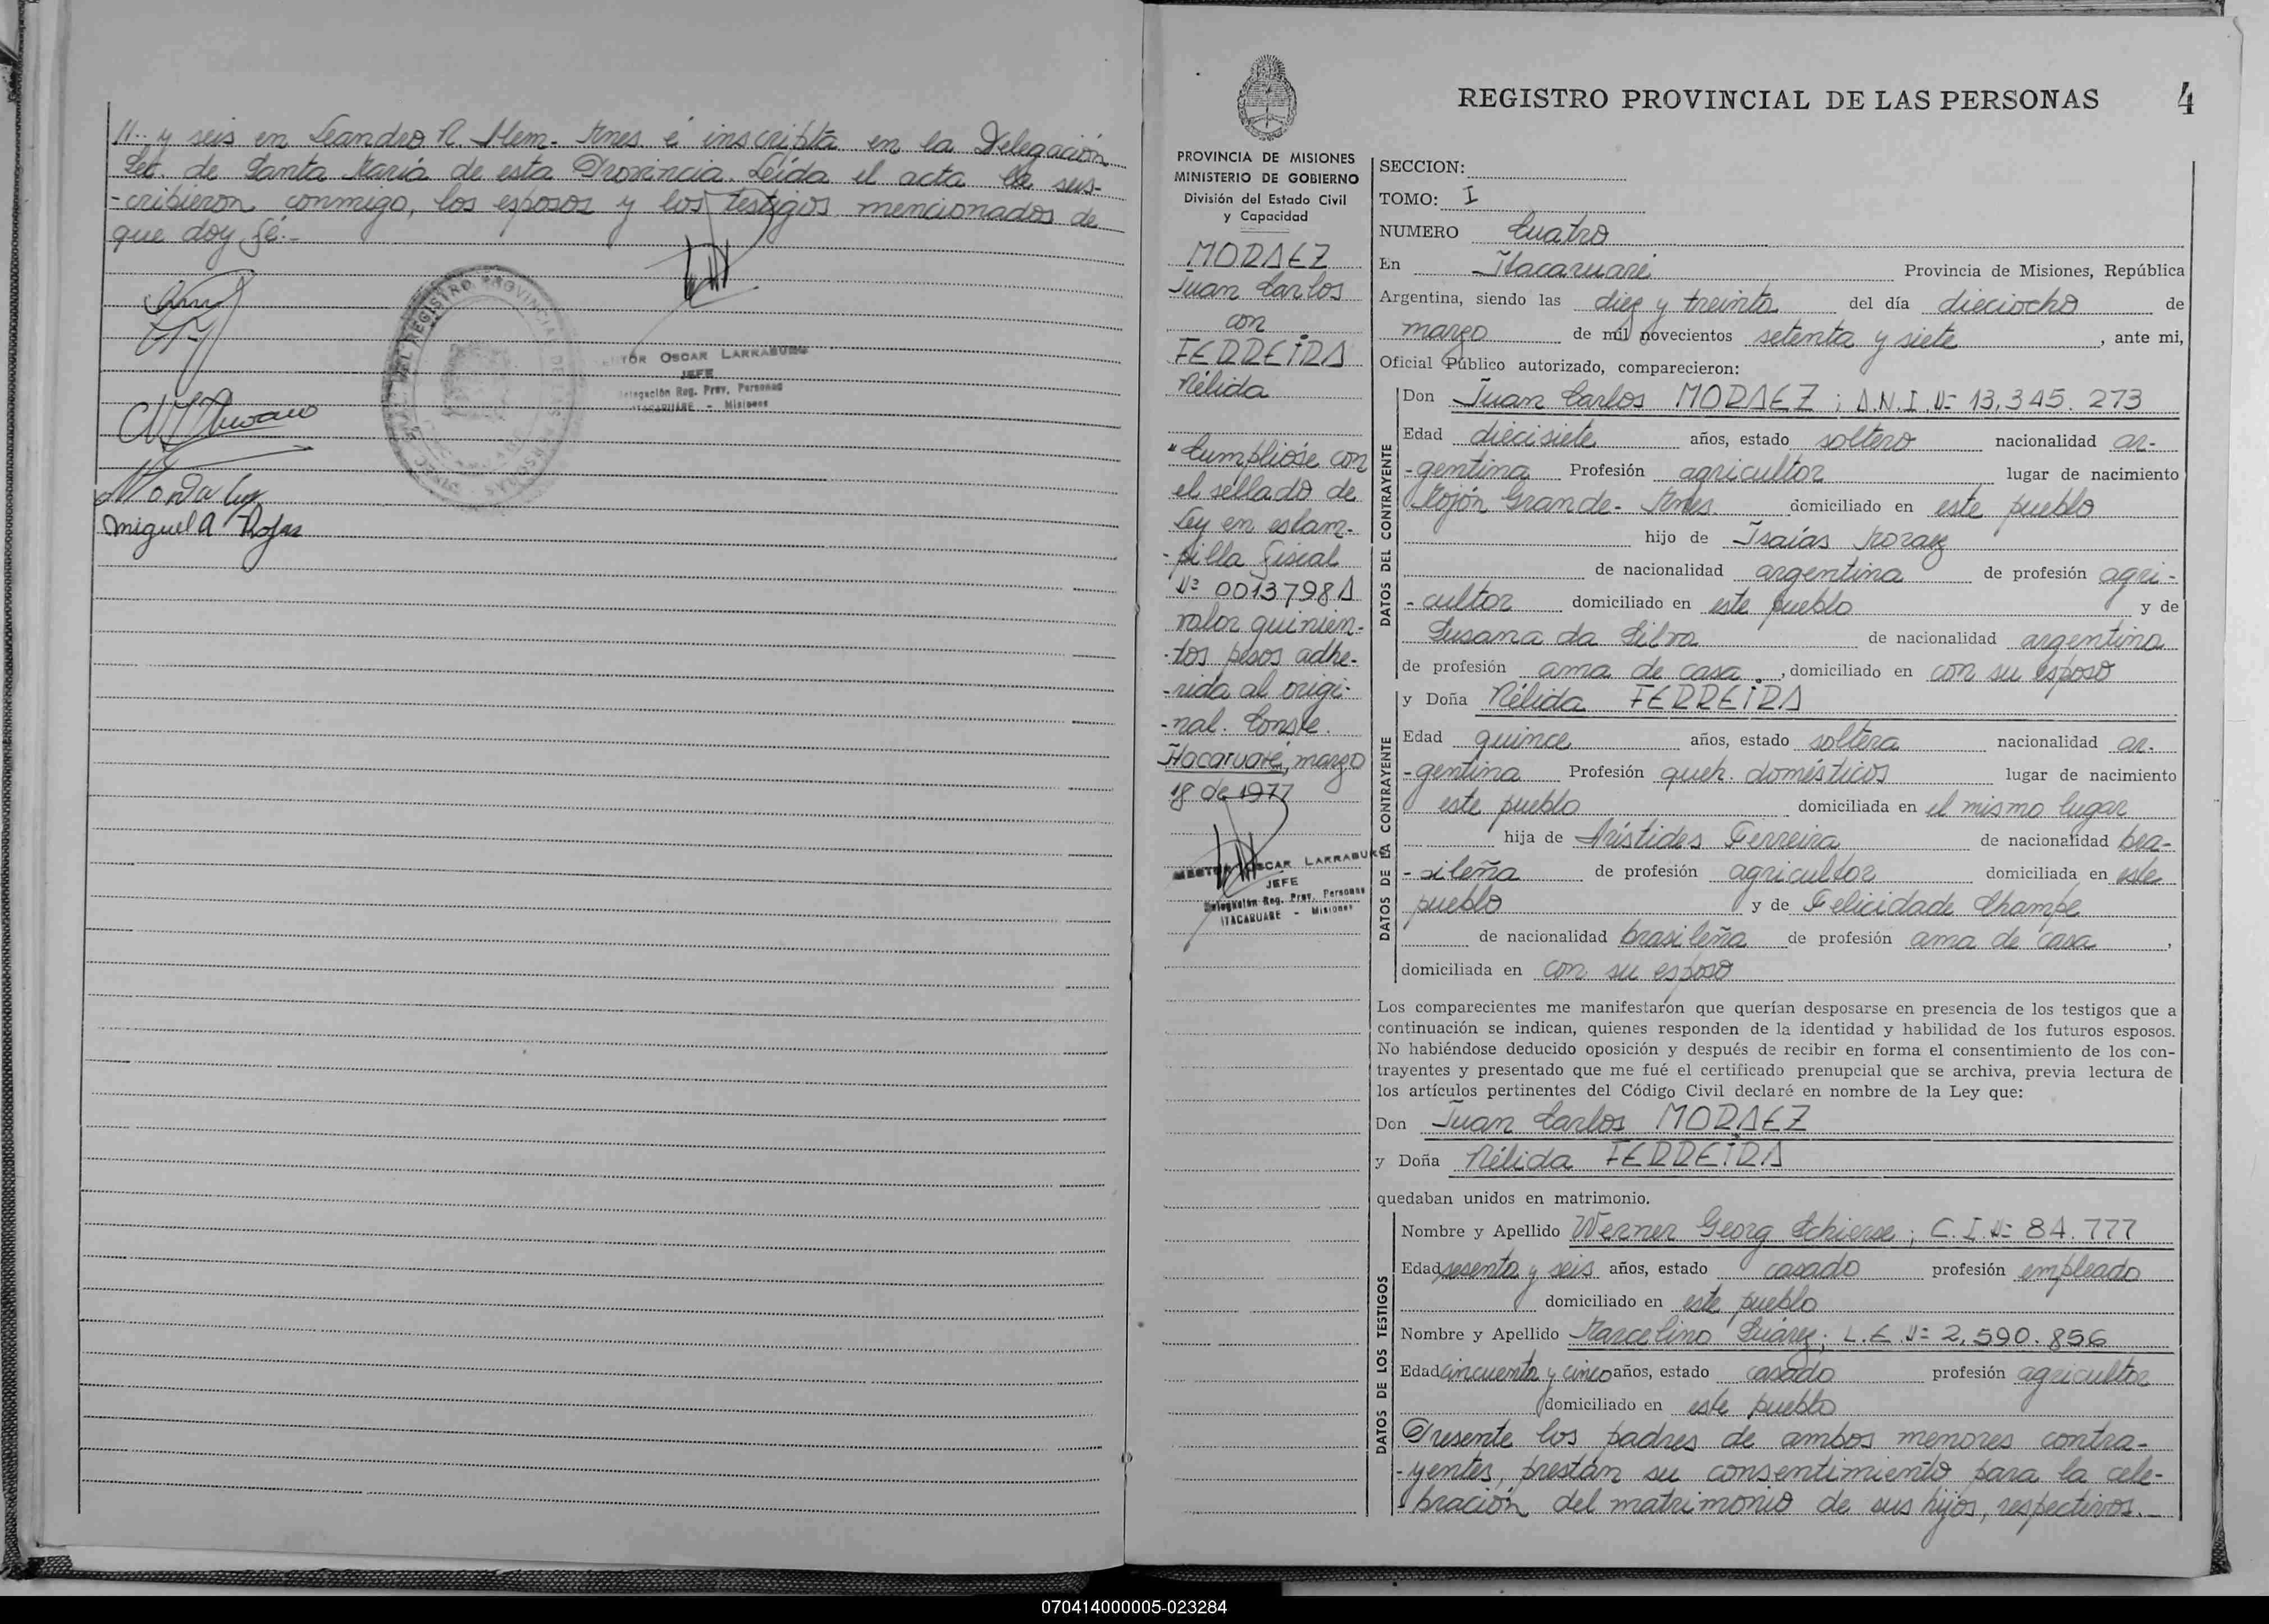 //.. y seis en Leandro N. Alem - Mnes é inscripta en la Delegación
Sec. de Santa María de esta Provincia. Leída el acta la sus-
-cribieron conmigo, los esposos y los testigos mencionados de
que doy fé.-
NESTOR OSCAR LARRABURU
JEFE
Delegación Reg. Prov. Personas
ITACARUARE - Misiones
Miguel A Rojas
REGISTRO PROVINCIAL DE LAS PERSONAS 4
PROVINCIA DE MISIONES
MINISTERIO DE GOBIERNO
División del Estado Civil
y Capacidad
MORAEZ
Juan Carlos
con
FERREIRA
Nélida
"Cumplióse con
el sellado de
Ley en estam-
-pilla fiscal
Nº 0013798A
valor quinien-
-tos pesos adhe-
-rida al origi-
-nal. Conste.
Itacaruaré, marzo
18 de 1977
NESTOR OSCAR LARRABURU
JEFE
Delegación Reg. Prov. Personas
ITACARUARE - Misiones
SECCION:
TOMO: I
NUMERO Cuatro
En Itacaruaré Provincia de Misiones, República
Argentina, siendo las diez y treinta del día dieciocho de
marzo de mil novecientos setenta y siete, ante mi,
Oficial Público autorizado, comparecieron:
DATOS DEL CONTRAYENTE
Don Juan Carlos MORAEZ; D.N.I. Nº 13.345.273
Edad diecisiete años, estado soltero nacionalidad ar-
-gentina Profesión agricultor lugar de nacimiento
Mojón Grande - Mnes domiciliado en este pueblo
hijo de Isaías Moraez
de nacionalidad argentina de profesión agri-
-cultor domiciliado en este pueblo y de
Susana da Silva de nacionalidad argentina
de profesión ama de casa, domiciliado en con su esposo
DATOS DE LA CONTRAYENTE
y Doña Nélida FERREIRA
Edad quince años, estado soltera nacionalidad ar-
-gentina Profesión queh. domésticos lugar de nacimiento
este pueblo domiciliada en el mismo lugar
hija de Arístides Ferreira de nacionalidad bra-
-sileña de profesión agricultor domiciliada en este
pueblo y de Felicidade Champe
de nacionalidad brasileña de profesión ama de casa,
domiciliada en con su esposo
Los comparecientes me manifestaron que querían desposarse en presencia de los testigos que a
continuación se indican, quienes responden de la identidad y habilidad de los futuros esposos.
No habiéndose deducido oposición y después de recibir en forma el consentimiento de los con-
trayentes y presentado que me fué el certificado prenupcial que se archiva, previa lectura de
los artículos pertinentes del Código Civil declaré en nombre de la Ley que:
Don Juan Carlos MORAEZ
y Doña Nélida FERREIRA
quedaban unidos en matrimonio.
DATOS DE LOS TESTIGOS
Nombre y Apellido Werner Georg Schierse; C.I. Nº 84.777
Edad sesenta y seis años, estado casado profesión empleado
domiciliado en este pueblo
Nombre y Apellido Marcelino Suárez; L.E. Nº 2.590.856
Edad cincuenta y cinco años, estado casado profesión agricultor
domiciliado en este pueblo
Presente los padres de ambos menores contra-
-yentes, prestan su consentimiento para la cele-
-bración del matrimonio de sus hijos, respectivos.-
070414000005-023284